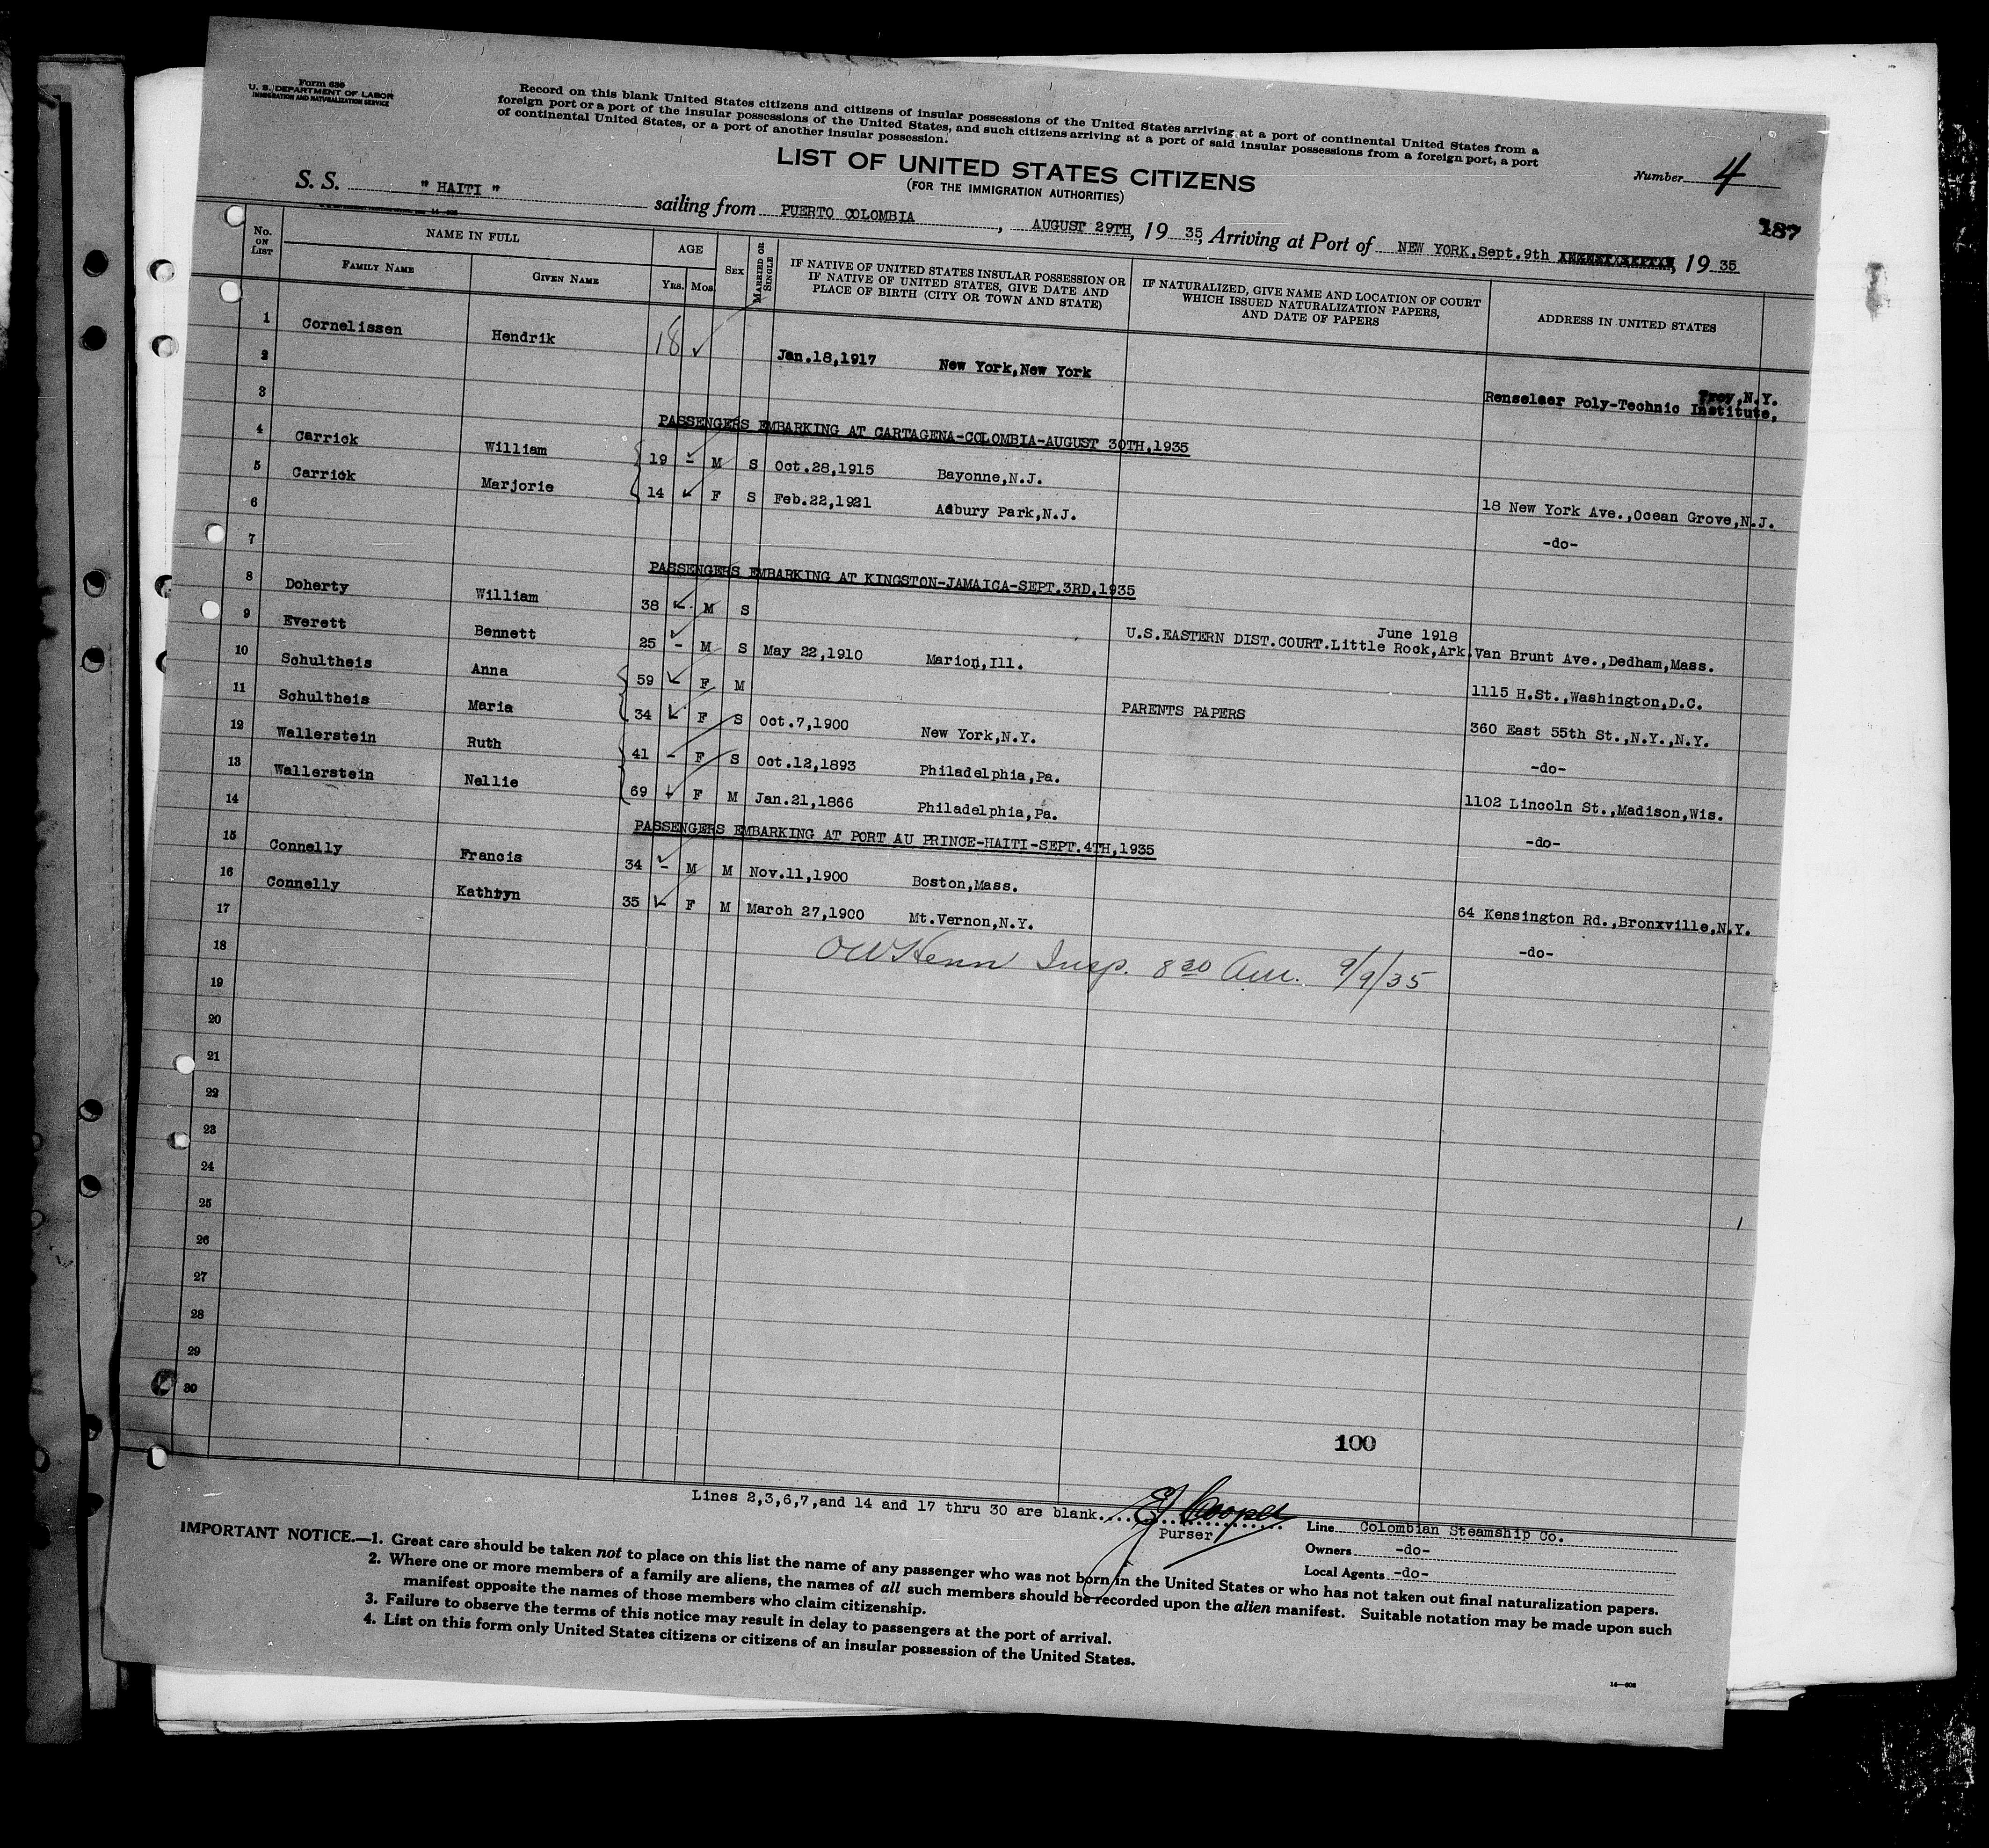 Form 630
U. S. DEPARTMENT OF LABOR
IMMIGRATION AND NATURALIZATION SERVICE
Record on this blank United States citizens and citizens of insular possessions of the United States arriving at a port of continental United States from a
foreign port or a port of the insular possessions of the United States, and such citizens arriving at a port of said insular possessions from a foreign port, a port
of continental United States, or a port of another insular possession.
LIST OF UNITED STATES CITIZENS
(FOR THE IMMIGRATION AUTHORITIES)
Number 4
187
S. S. " HAITI " sailing from PUERTO COLOMBIA, AUGUST 29TH, 1935, Arriving at Port of NEW YORK,Sept.9th 1935
No. ON LIST
NAME IN FULL
FAMILY NAME
GIVEN NAME
AGE
YRS. MOS.
SEX
MARRIED OR SINGLE
IF NATIVE OF UNITED STATES INSULAR POSSESSION OR
IF NATIVE OF UNITED STATES, GIVE DATE AND
PLACE OF BIRTH (CITY OR TOWN AND STATE)
IF NATURALIZED, GIVE NAME AND LOCATION OF COURT
WHICH ISSUED NATURALIZATION PAPERS,
AND DATE OF PAPERS
ADDRESS IN UNITED STATES
1 Cornelissen Hendrik 18 Jan.18,1917 New York,New York Renselaer Poly-Technic Institute, Troy,N.Y.
2
3
PASSENGERS EMBARKING AT CARTAGENA-COLOMBIA-AUGUST 30TH,1935
4 Carrick William 19 - M S Oct.28,1915 Bayonne,N.J. 18 New York Ave.,Ocean Grove,N.J.
5 Carrick Marjorie 14 - F S Feb.22,1921 Adbury Park,N.J. -do-
6
7
PASSENGERS EMBARKING AT KINGSTON-JAMAICA-SEPT.3RD,1935
8 Doherty William 38 - M S U.S.EASTERN DIST.COURT.Little Rock,Ark. June 1918 Van Brunt Ave.,Dedham,Mass.
9 Everett Bennett 25 - M S May 22,1910 Marion,Ill. 1115 H.St.,Washington,D.C.
10 Schultheis Anna 59 - F M PARENTS PAPERS 360 East 55th St.,N.Y.,N.Y.
11 Schultheis Maria 34 - F S Oct.7,1900 New York,N.Y. -do-
12 Wallerstein Ruth 41 - F S Oct.12,1893 Philadelphia,Pa. 1102 Lincoln St.,Madison,Wis.
13 Wallerstein Nellie 69 - F M Jan.21,1866 Philadelphia,Pa. -do-
14
PASSENGERS EMBARKING AT PORT AU PRINCE-HAITI-SEPT.4TH,1935
15 Connelly Francis 34 - M M Nov.11,1900 Boston,Mass. 64 Kensington Rd.,Bronxville,N.Y.
16 Connelly Kathryn 35 - F M March 27,1900 Mt.Vernon,N.Y. -do-
17
18
OW Henn Insp. 8 20 Am. 9/9/35
19
20
21
22
23
24
25
26
27
28
29
30
100
Lines 2,3,6,7,and 14 and 17 thru 30 are blank.
EJ Cooper
Purser
Line Colombian Steamship Co.
Owners -do-
Local Agents -do-
IMPORTANT NOTICE.—1. Great care should be taken not to place on this list the name of any passenger who was not born in the United States or who has not taken out final naturalization papers.
2. Where one or more members of a family are aliens, the names of all such members should be recorded upon the alien manifest. Suitable notation may be made upon such
manifest opposite the names of those members who claim citizenship.
3. Failure to observe the terms of this notice may result in delay to passengers at the port of arrival.
4. List on this form only United States citizens or citizens of an insular possession of the United States.